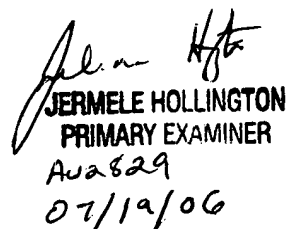 JERMELE HOLLINGTON
PRIMARY EXAMINER
AU2829
07/19/06